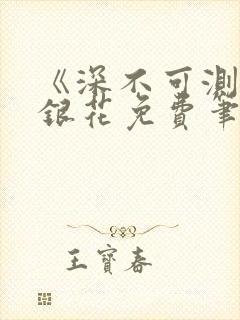 《深不可测
银花免費笔
王寶春